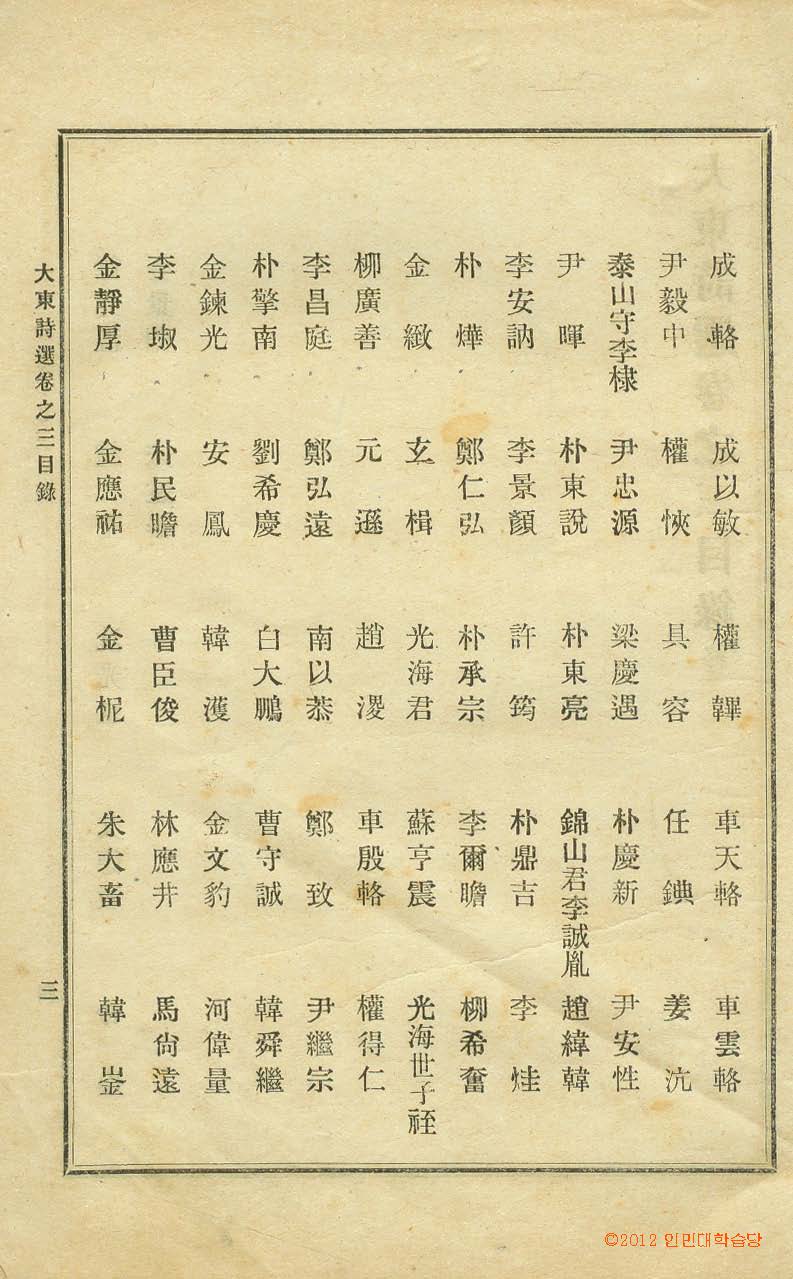 成輅 成以敏 權韠 車天輅 車雲輅
尹毅中 權悏 具容 任錪 姜沆
泰山守李棣 尹忠源 梁慶遇 朴慶新 尹安性
尹暉 朴東說 朴東亮 錦山君李誠胤 趙緯韓
李安訥 李景顏 許筠 朴鼎吉 李烓
朴燁 鄭仁弘 朴承宗 李爾瞻 柳希奮
金緻 玄楫 光海君 蘇亨震 光海世子祬
柳廣善 元遜 趙溭 車殷輅 權得仁
李昌庭 鄭弘遠 南以恭 鄭致 尹繼宗
朴擎南 劉希慶 白大鵬 曹守誠 韓舜繼
金鍊光 安鳳 韓濩 金文豹 河偉量
李埱 朴民瞻 曹臣俊 林應井 馬尙遠
金靜厚 金應祐 金柅 朱大畜 韓崟
大東詩選卷之三目錄 三
©2012 인민대학습당